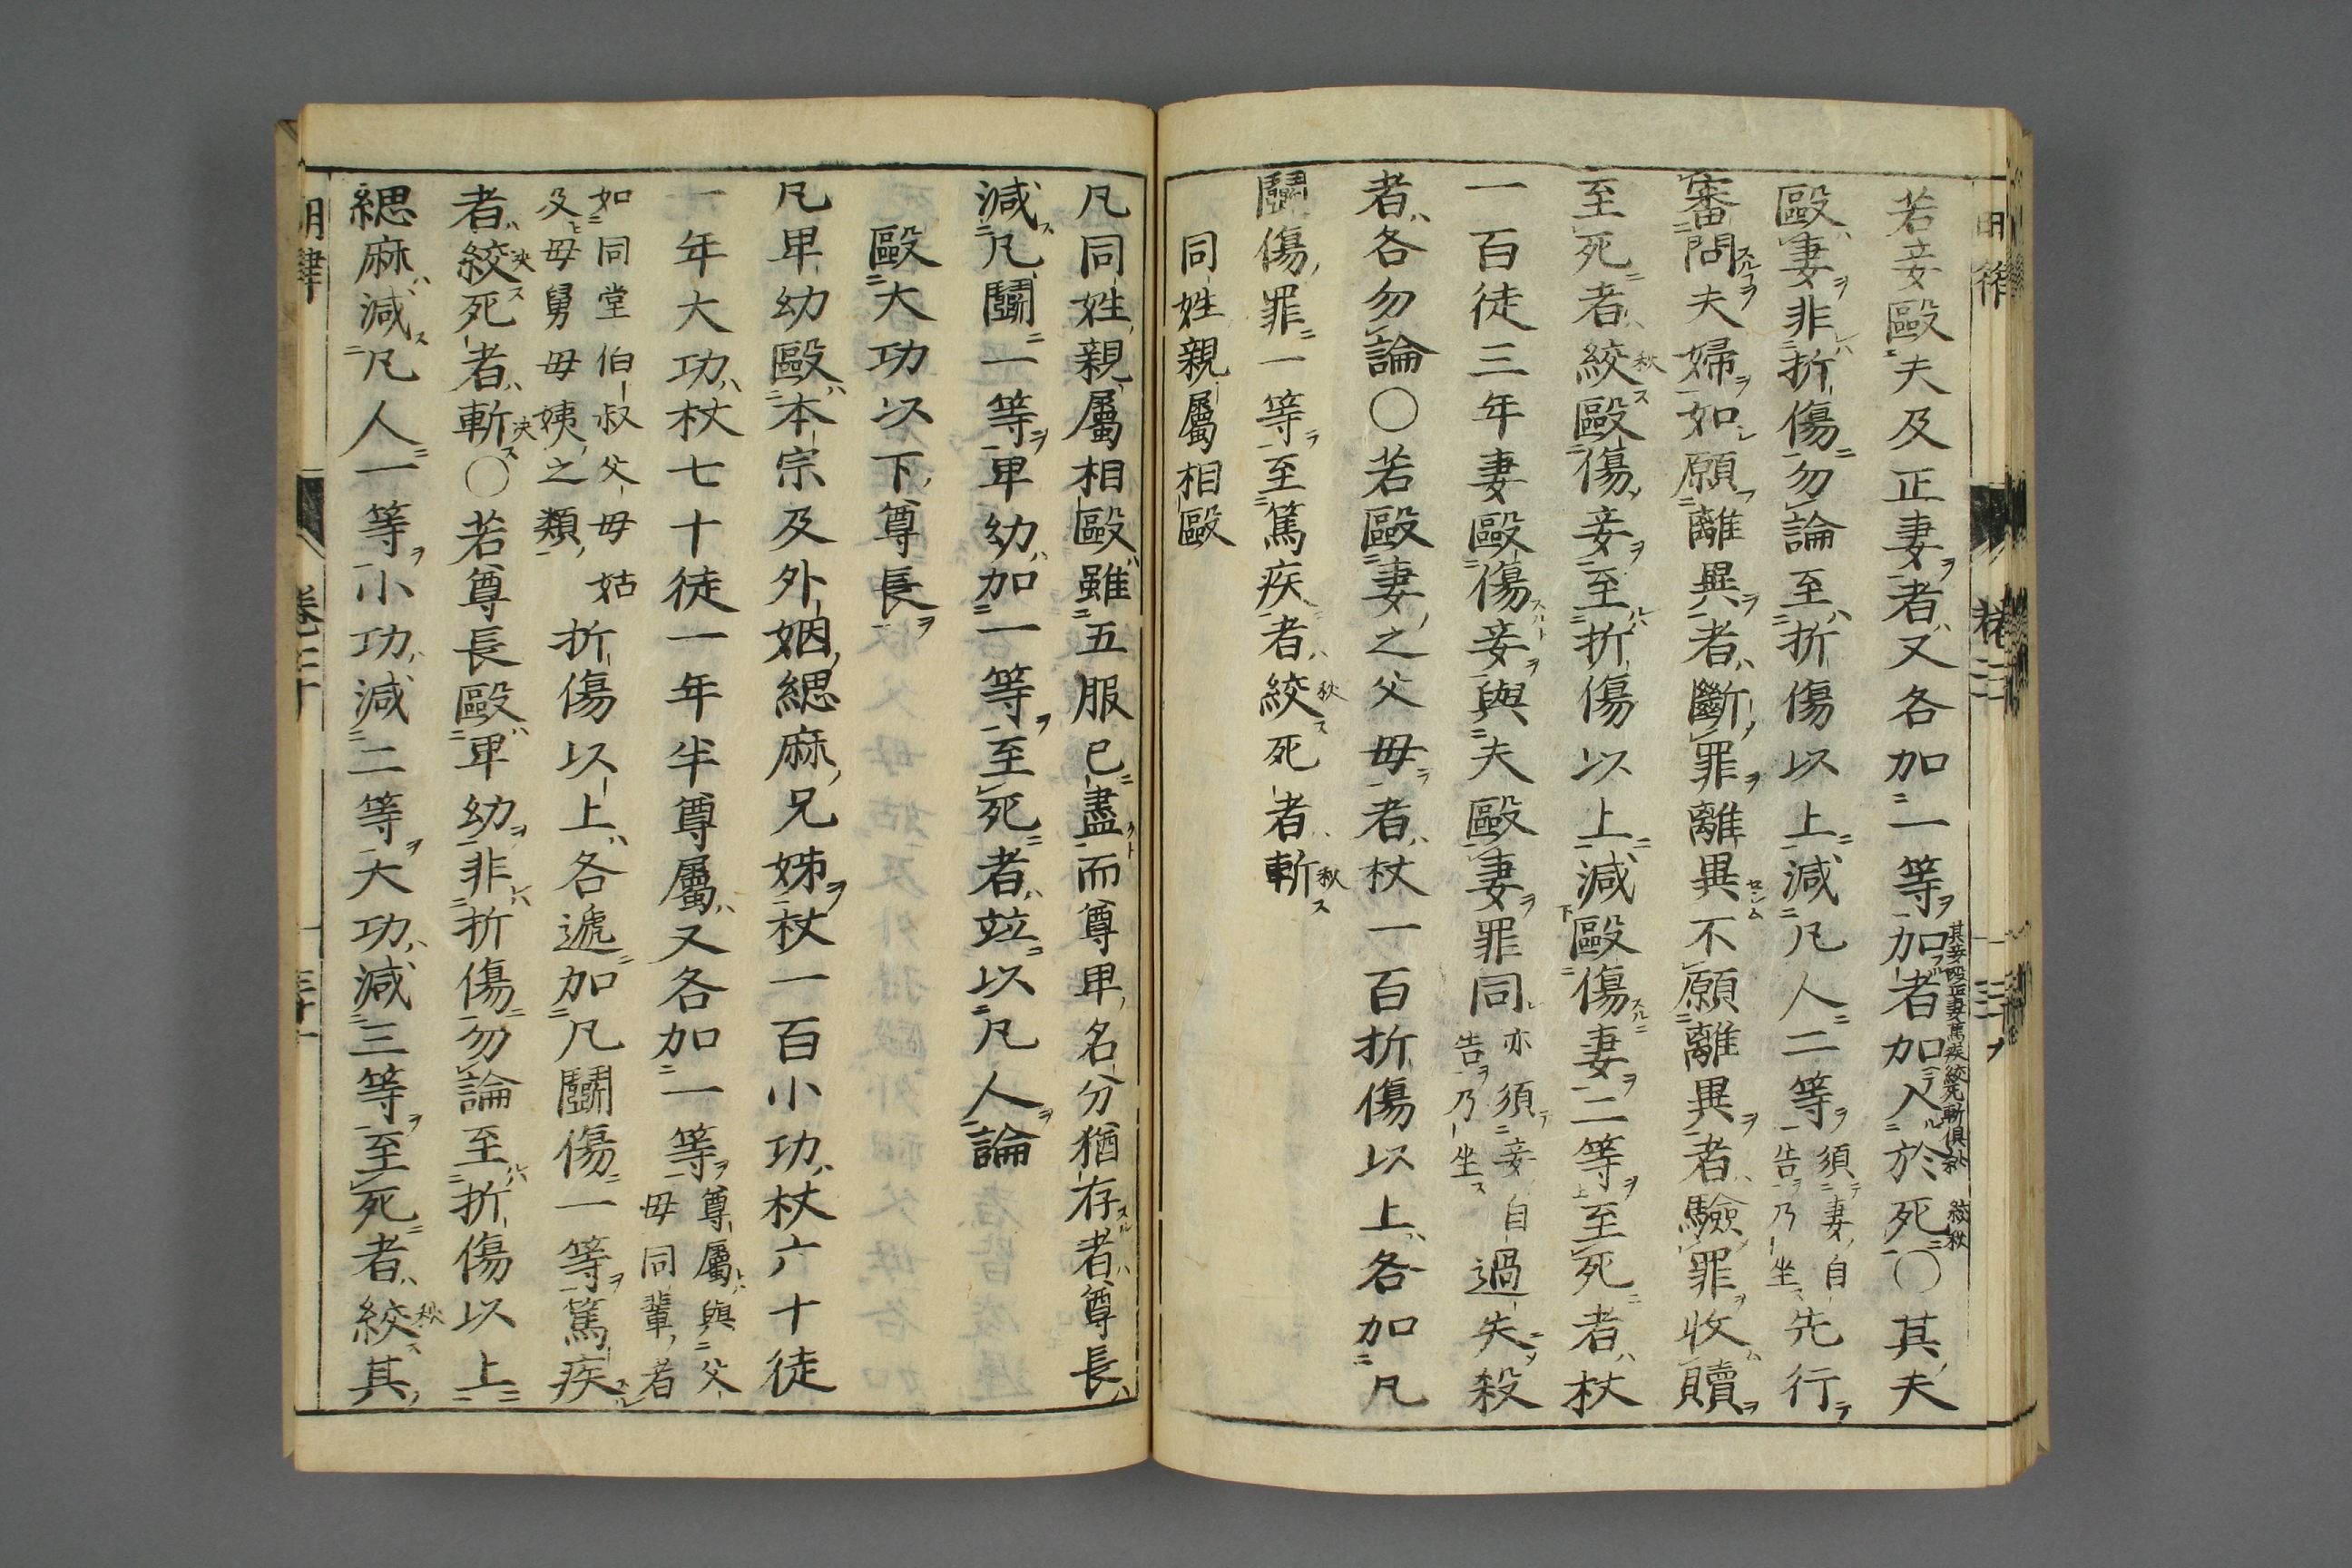 若妾毆夫及正妻者又各加一等加者加入於死〇其夫
毆妻非折傷勿論至折傷以上減凡人二等須妻自告乃坐先行
審問夫婦如願離異者斷罪離異不願離異者驗罪收贖
至死者絞毆傷妾至折傷以上減毆傷妻二等至死者杖
一百徒三年妻毆傷妾與夫毆妻罪同亦須妾自告乃坐過失殺
者各勿論〇若毆妻之父母者杖一百折傷以上各加凡
鬬傷罪一等至篤疾者絞死者斬
同姓親屬相毆
凡同姓親屬相毆雖五服已盡而尊卑名分猶存者尊長
減凡鬬一等卑幼加一等至死者竝以凡人論
毆大功以下尊長
凡卑幼毆本宗及外姻緦麻兄姊杖一百小功杖六十徒
一年大功杖七十徒一年半尊屬又各加一等尊屬與父母同輩者
如同堂伯叔父母姑及母舅母姨之類折傷以上各遞加凡鬬傷一等篤疾
者絞死者斬〇若尊長毆卑幼非折傷勿論至折傷以上
緦麻減凡人一等小功減二等大功減三等至死者絞其